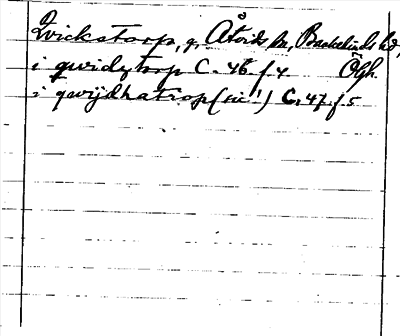 Qvickstorp, g, Åtvids sn, Bankekinds hd,
i qwidytrop C. 46 f. 4 Ögl.
i qwijdhatrop (sic!) C. 47 f. 5